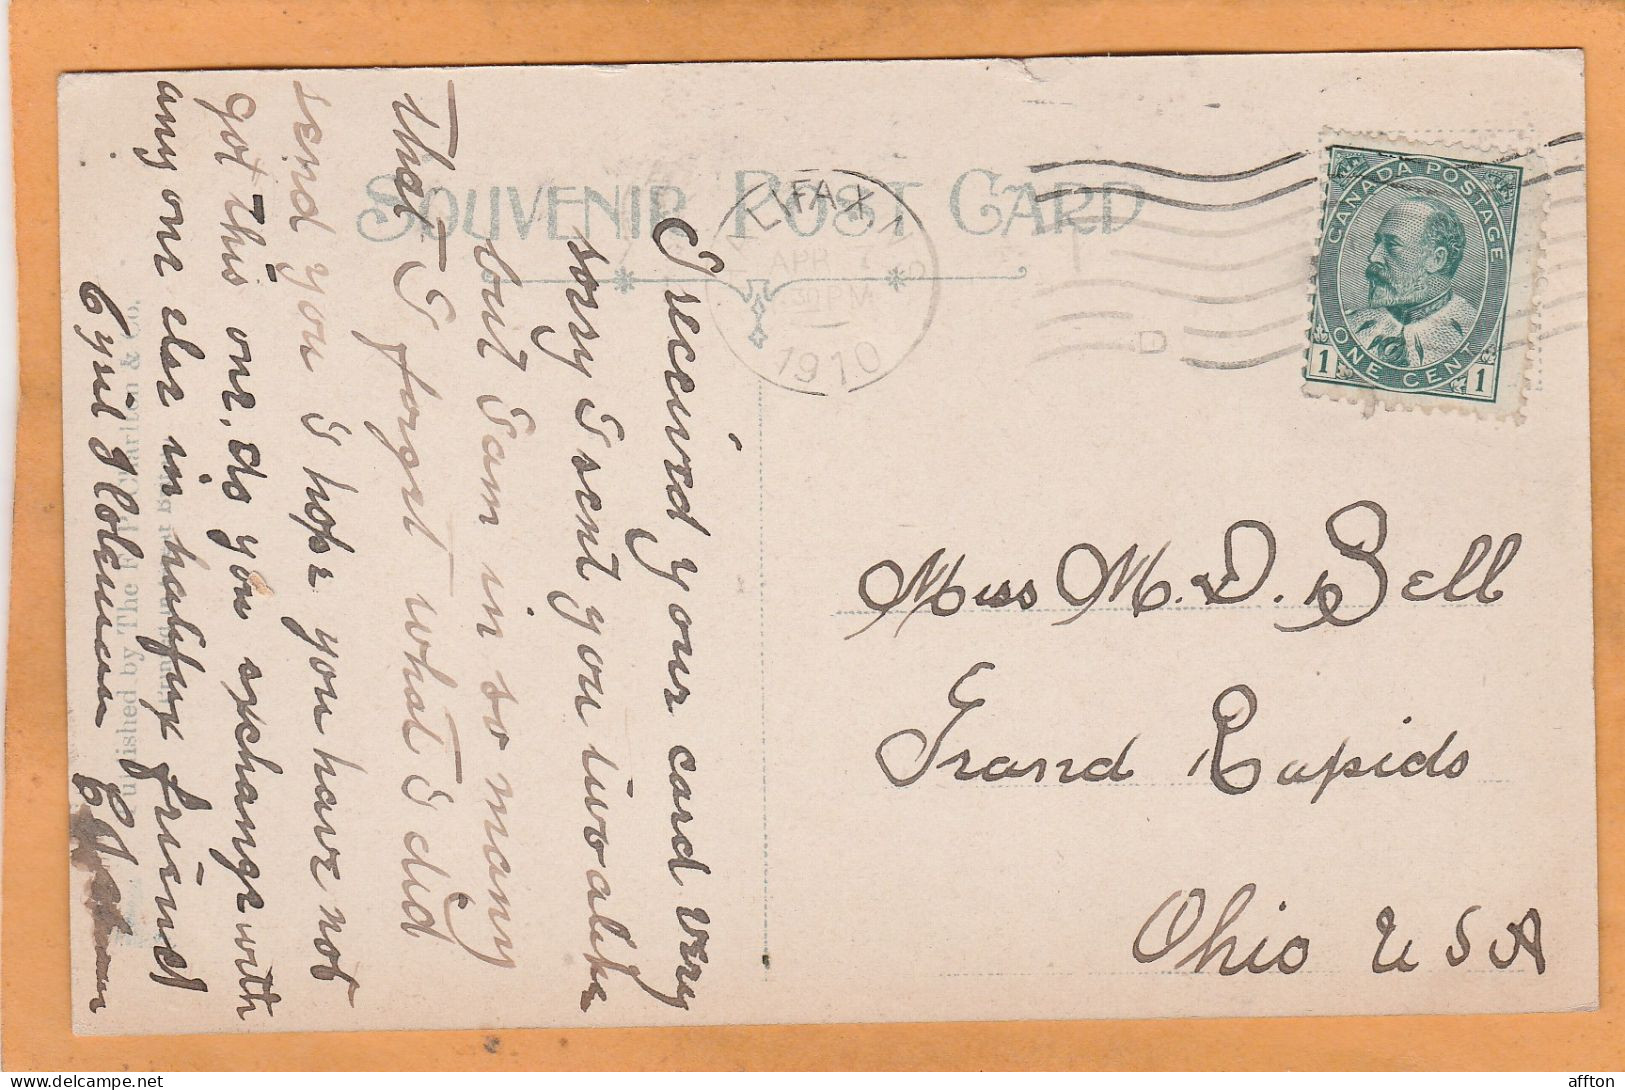 SOUVENIR POST CARD
HALIFAX, N.S.
APR
30 PM
1910
CANADA POSTAGE
ONE CENT
1 1
I received your card very
sorry I sent you two alike
but I am in so many
That I forget what I did
send you I hope you have not
got this one, do you exchange with
any one else in halifax friend
Cyril
Published by The Charlton & Co.
Miss M. D. Bell
Grand Rapids
Ohio U S A
affton